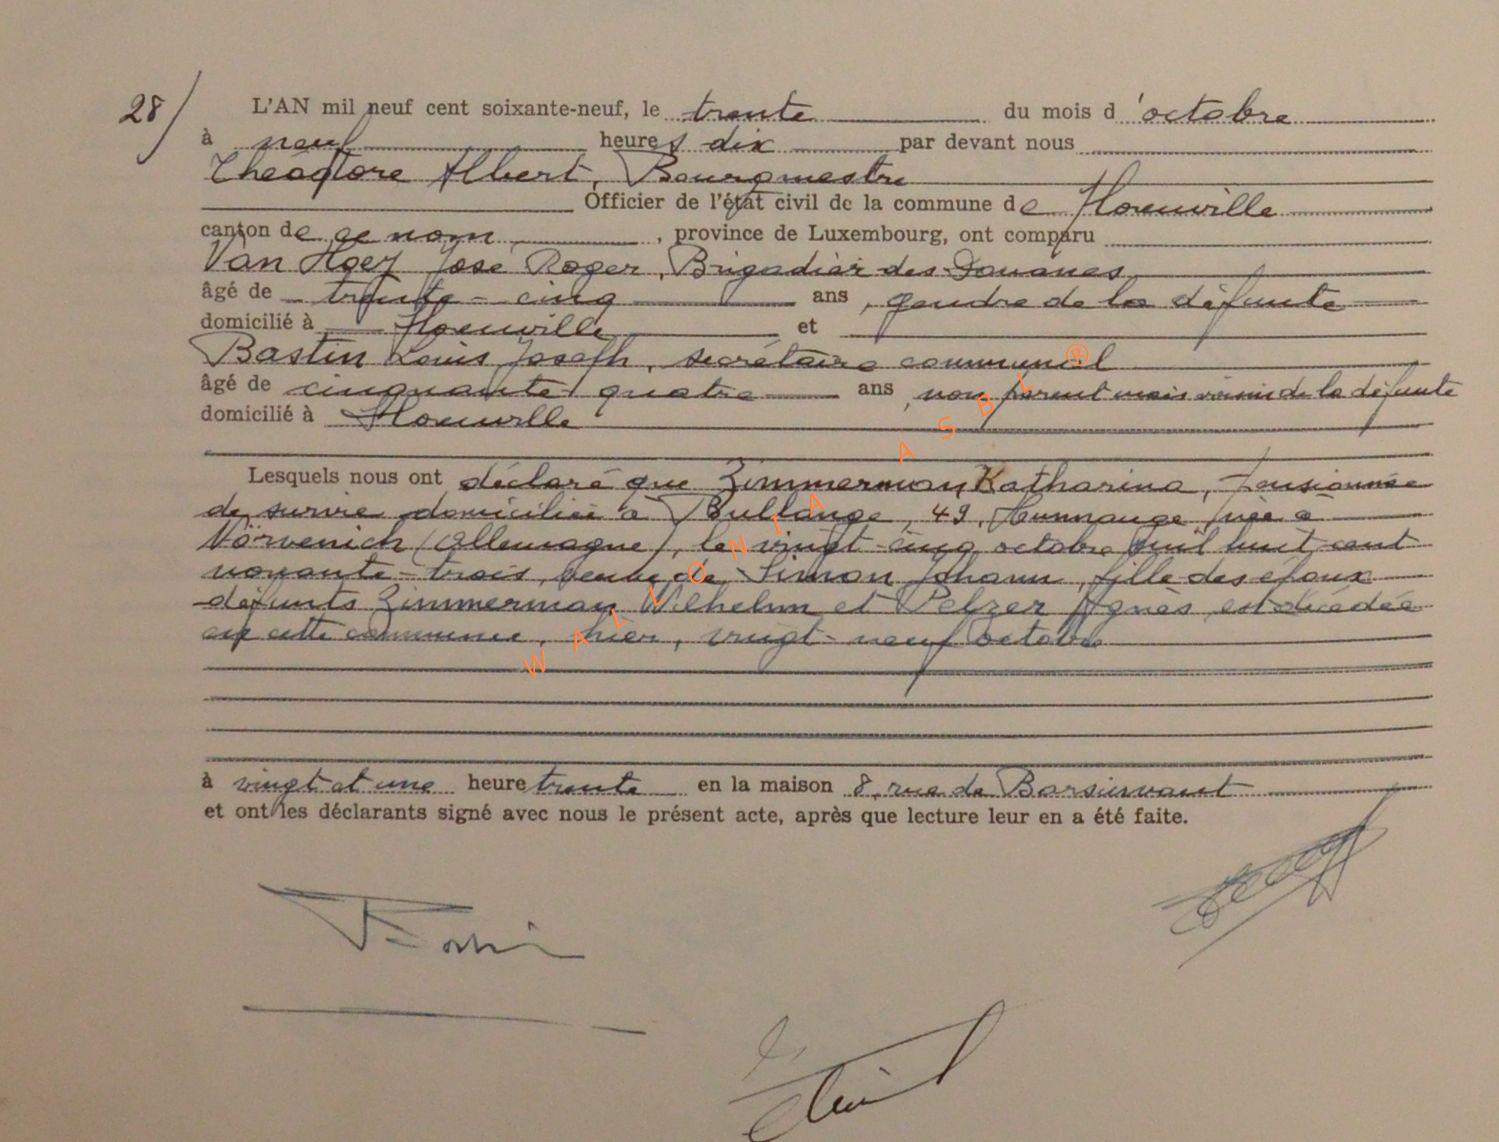 28/ L'AN mil neuf cent soixante-neuf, le trente du mois d'octobre
à neuf heures dix par devant nous
Théodore Albert, Bourgmestre
Officier de l'état civil de la commune de Florenville
canton de ce nom, province de Luxembourg, ont comparu
Van Hoey José Roger, Brigadier des Douanes,
âgé de trente-cinq ans, gendre de la défunte
domicilié à Florenville et
Bastin Louis Joseph, secrétaire communal
âgé de cinquante quatre ans, non parent mais voisin de la défunte
domicilié à Florenville
Lesquels nous ont déclaré que Zimmerman Katharina, pensionnée
de survie domiciliée à Bullange, 49, Hunnange, née à
Nörvenich (Allemagne), le vingt-cinq octobre mil huit cent
nonante-trois, veuve de Simon Johann, fille des époux
défunts Zimmerman Wilhelm et Pelzer Agnès, est décédée
en cette commune, hier, vingt-neuf octobre
à vingt et une heure trente en la maison 8, rue de
et ont les déclarants signé avec nous le présent acte, après que lecture leur en a été faite.
WALLONIA ASBL ®